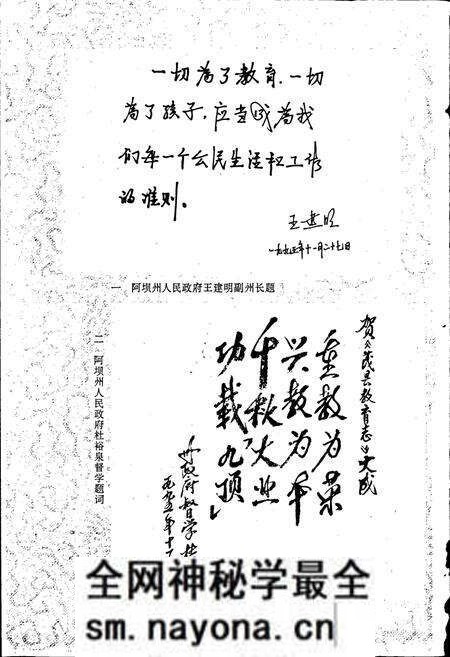 一切为了教育，一切
为了孩子，应当成为我
们每一个公民生活和工作
的准则。
王建明
一九九五年十一月二十九日
一 阿坝州人民政府王建明副州长题
贺《茂县教育志》大成
重教为荣
兴教为本
千秋大业
功载九顶
州政府督学杜
一九九五年十一
二 阿坝州人民政府杜裕泉督学题词
全网神秘学最全
sm.nayona.cn